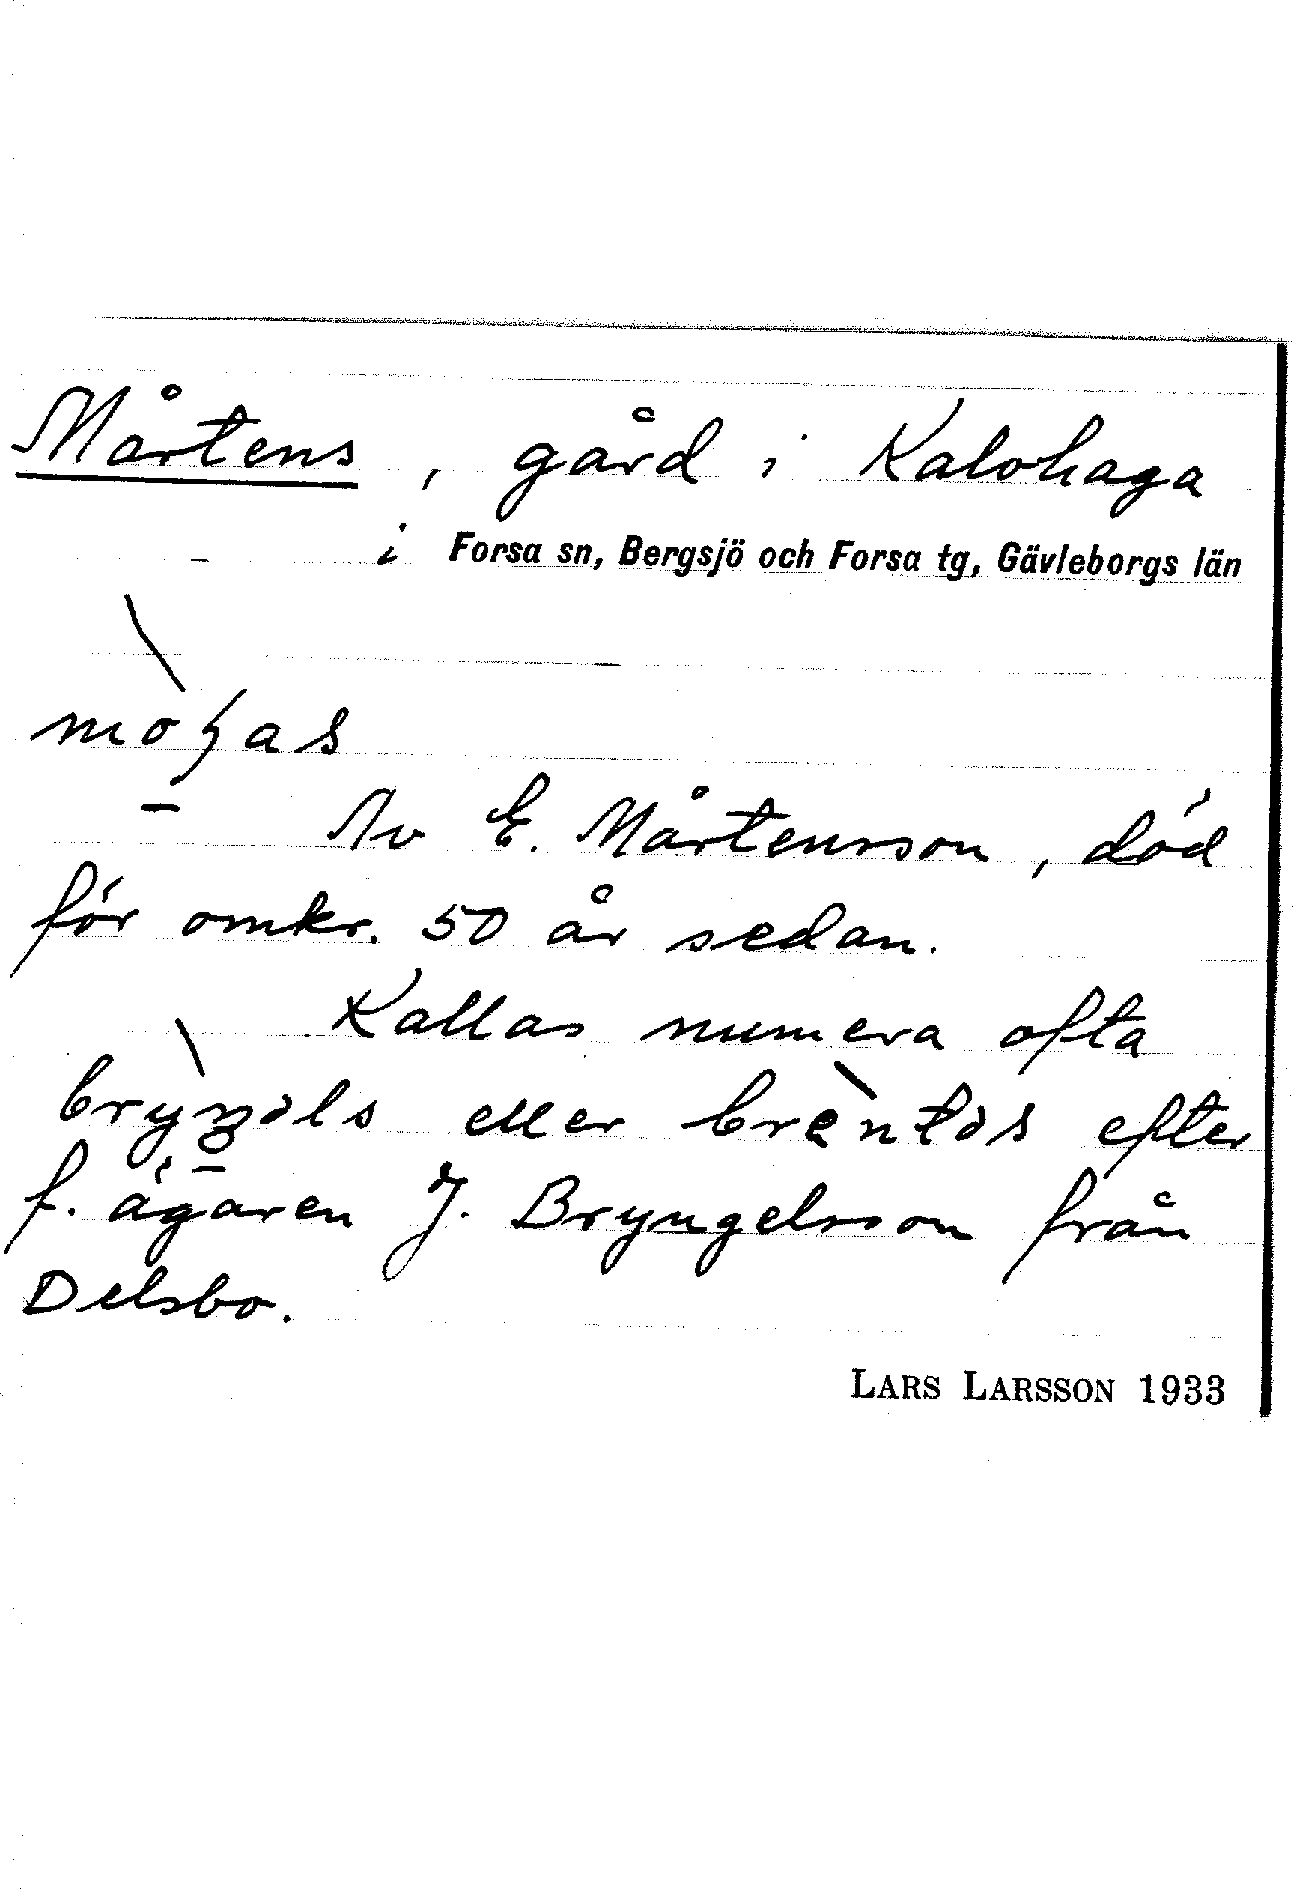 Mårtens, gård i Kalvhaga
i Forsa sn, Bergsjö och Forsa tg, Gävleborgs län
Av E. Mårtensson, död
för omkr. 50 år sedan.
Kallas numera ofta
eller efter
f. ägaren J. Bryngelsson från
Delsbo.
LARS LARSSON 1933